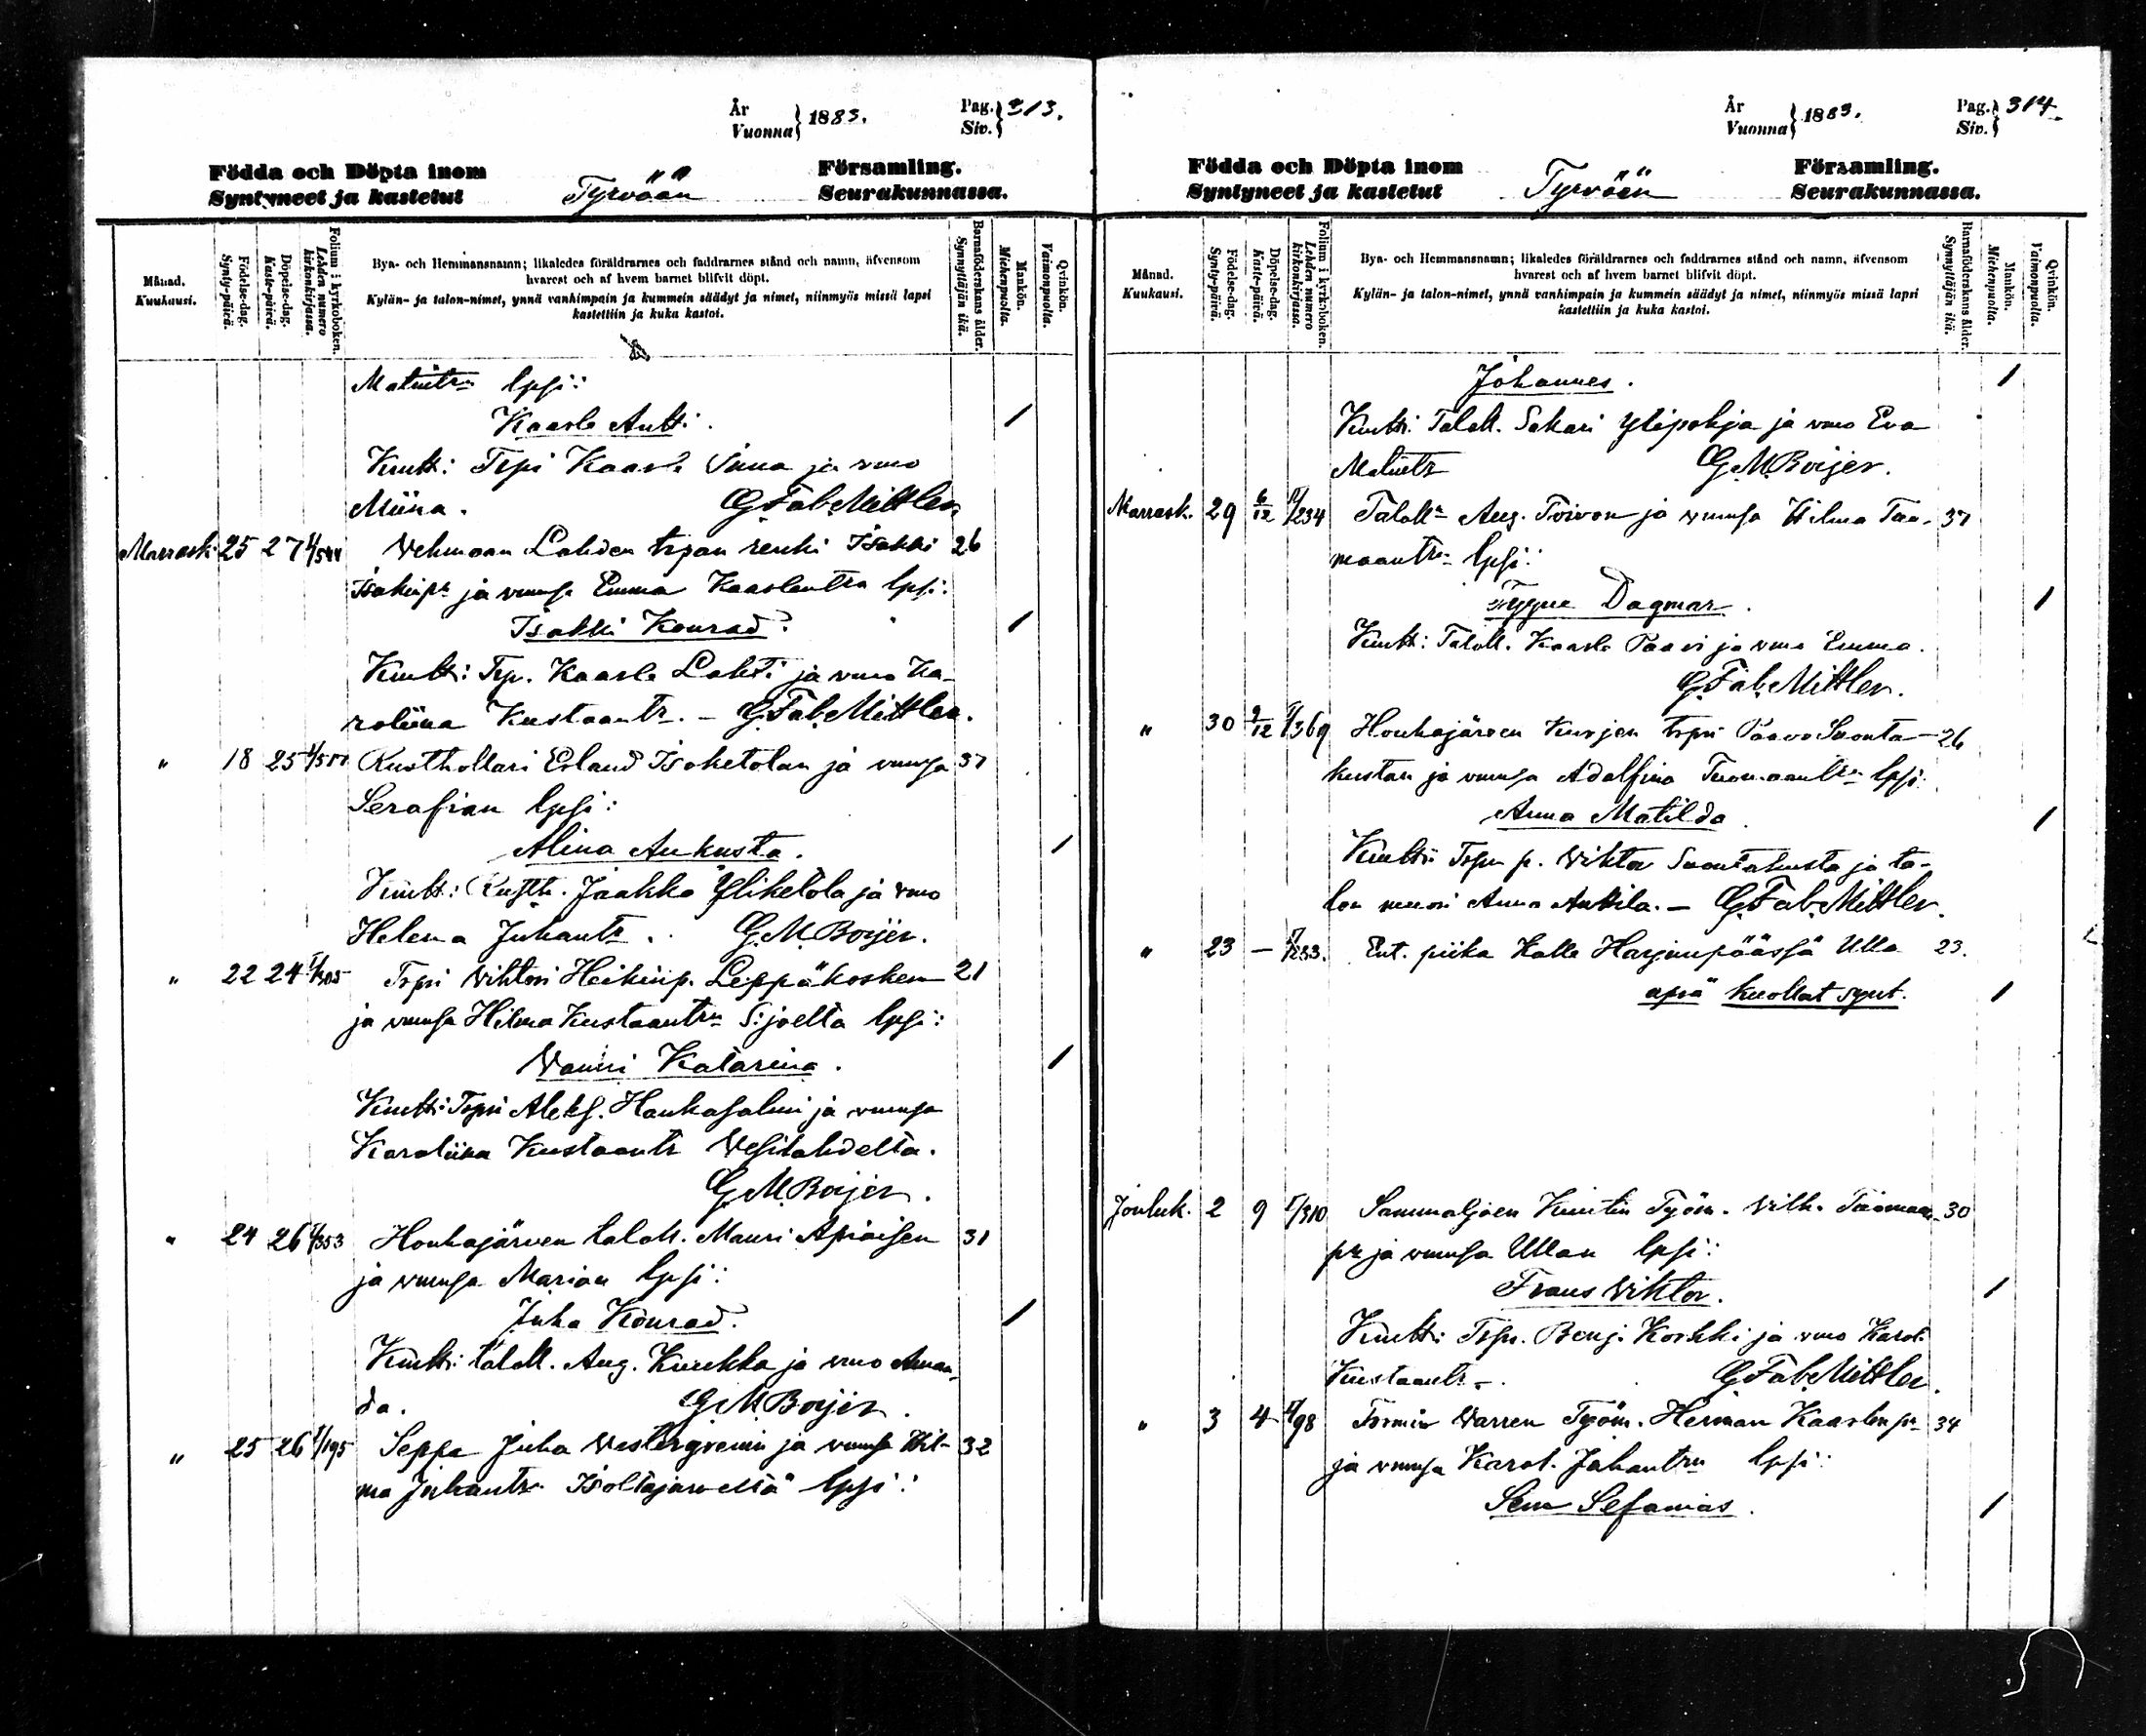 År
Vuonna } 1883.
Pag.
Siv. } 313.
Födda och Döpta inom
Syntyneet ja kastetut
Tyrvään
Församling.
Seurakunnassa.
Månad.
Kuukausi.
Födelse-dag.
Synty-päivä.
Döpelse-dag.
Kaste-päivä.
Folium i kyrkoboken.
Lehden numero
kirkonkirjassa.
Bya- och Hemmansnamn; likaledes föräldrarnes och faddrarnes stånd och namn, äfvensom
hvarest och af hvem barnet blifvit döpt.
Kylän- ja talon-nimet, ynnä vanhimpain ja kummein säädyt ja nimet, niinmyös missä lapsi
kastettiin ja kuka kastoi.
Barnaföderskans ålder.
Synnyttäjän ikä.
Mankön.
Miehenpuolta.
Qvinkön.
Vaimonpuolta.
Matintr lpsi:
Kaarle Antti. /
Kumt: Trpi Kaarle ja vmo
Miina. G. Fab. Mittler
Marrask. 25 27 Vehmaan Lahden trpan renki Isakki 26
Isakinp. ja vmnsa Emma Kaarlentra lpsi:
Isakki Konrad. /
Kumt: Trp. Kaarle Lahti ja vmo Ka-
roliina Kustaantr. – G. Fab. Mittler.
" 18 25 Rusthollari Erland Isoketolan ja vmnsa 37
Serafian lpsi:
Alina Aukusta. /
Kumt: Rusth. Jaakko Yliketola ja vmo
Helena Juhantr. G. M. Boijer.
" 22 24 Trpri Vihtori Heikinp. Leppäkosken 21
ja vmnsa Hilma Kustaantrn S:joelta lpsi:
Wanni Katarina. /
Kumt: Trpri Aleks. Haukasalmi ja vmnsa
Karoliina Kustaantr Vesilahdelta.
G. M. Boijer.
" 24 26 I/353 Houhajärven taloll. Mauri Apiaisen 31
ja vmnsa Marian lpsi:
Juha Konrad. /
Kumt: taloll. Aug. Kuukka ja vmo Aman-
da. G. M. Boijer.
" 25 26 I/195 Seppa Juha Westergrenin ja vmnsa Hil- 32
ma Juhantr. lpsi:
År
Vuonna } 1883.
Pag.
Siv. } 314.
Födda och Döpta inom
Syntyneet ja kastetut
Tyrvään
Församling.
Seurakunnassa.
Månad.
Kuukausi.
Födelse-dag.
Synty-päivä.
Döpelse-dag.
Kaste-päivä.
Folium i kyrkoboken.
Lehden numero
kirkonkirjassa.
Bya- och Hemmansnamn; likaledes föräldrarnes och faddrarnes stånd och namn, äfvensom
hvarest och af hvem barnet blifvit döpt.
Kylän- ja talon-nimet, ynnä vanhimpain ja kummein säädyt ja nimet, niinmyös missä lapsi
kastettiin ja kuka kastoi.
Barnaföderskans ålder.
Synnyttäjän ikä.
Mankön.
Miehenpuolta.
Qvinkön.
Vaimonpuolta.
Johannes. /
Kumt: Taloll. Sakari Ylipohja ja vmo Eva
Matintr G. M. Boijer.
Marrask. 29 6/12 Talolln Aug. Toivon ja vmnsa Hilma Tuo- 37
maantrn lpsi:
Tyyne Dagmar. /
Kumt: Taloll. Kaarle Paavi ja vmo Emma.
G. Fab. Mittler.
" 30 9/12 Houhajärven Kurjen trpri Paavo Suonta- 26
kustan ja vmnsa Adolfina Tuomaantrn lpsi:
Anna Matilda. /
Kumt: p. Viktor Suontakusta ja ta-
lon muori Anna Anttila. – G. Fab. Mittler.
" 23 – Ent. piika Kalle Harjunpäässä Ulla 23.
apiä kuollut synt. /
Jouluk. 2 9 I/310 Sammaljoen Kuutin Työm. Vilh. Tuomaan 30
pn ja vmnsa Ullan lpsi:
Frans Viktor. /
Kumt: Trpr. Benj. Korkki ja vmo Karol.
Kustaantr. G. Fab. Mittler.
" 3 4 Warren Työm. Herman Kaarlenpn 34
ja vmnsa Karol. Juhantrn lpsi:
Sem Sefanias. /